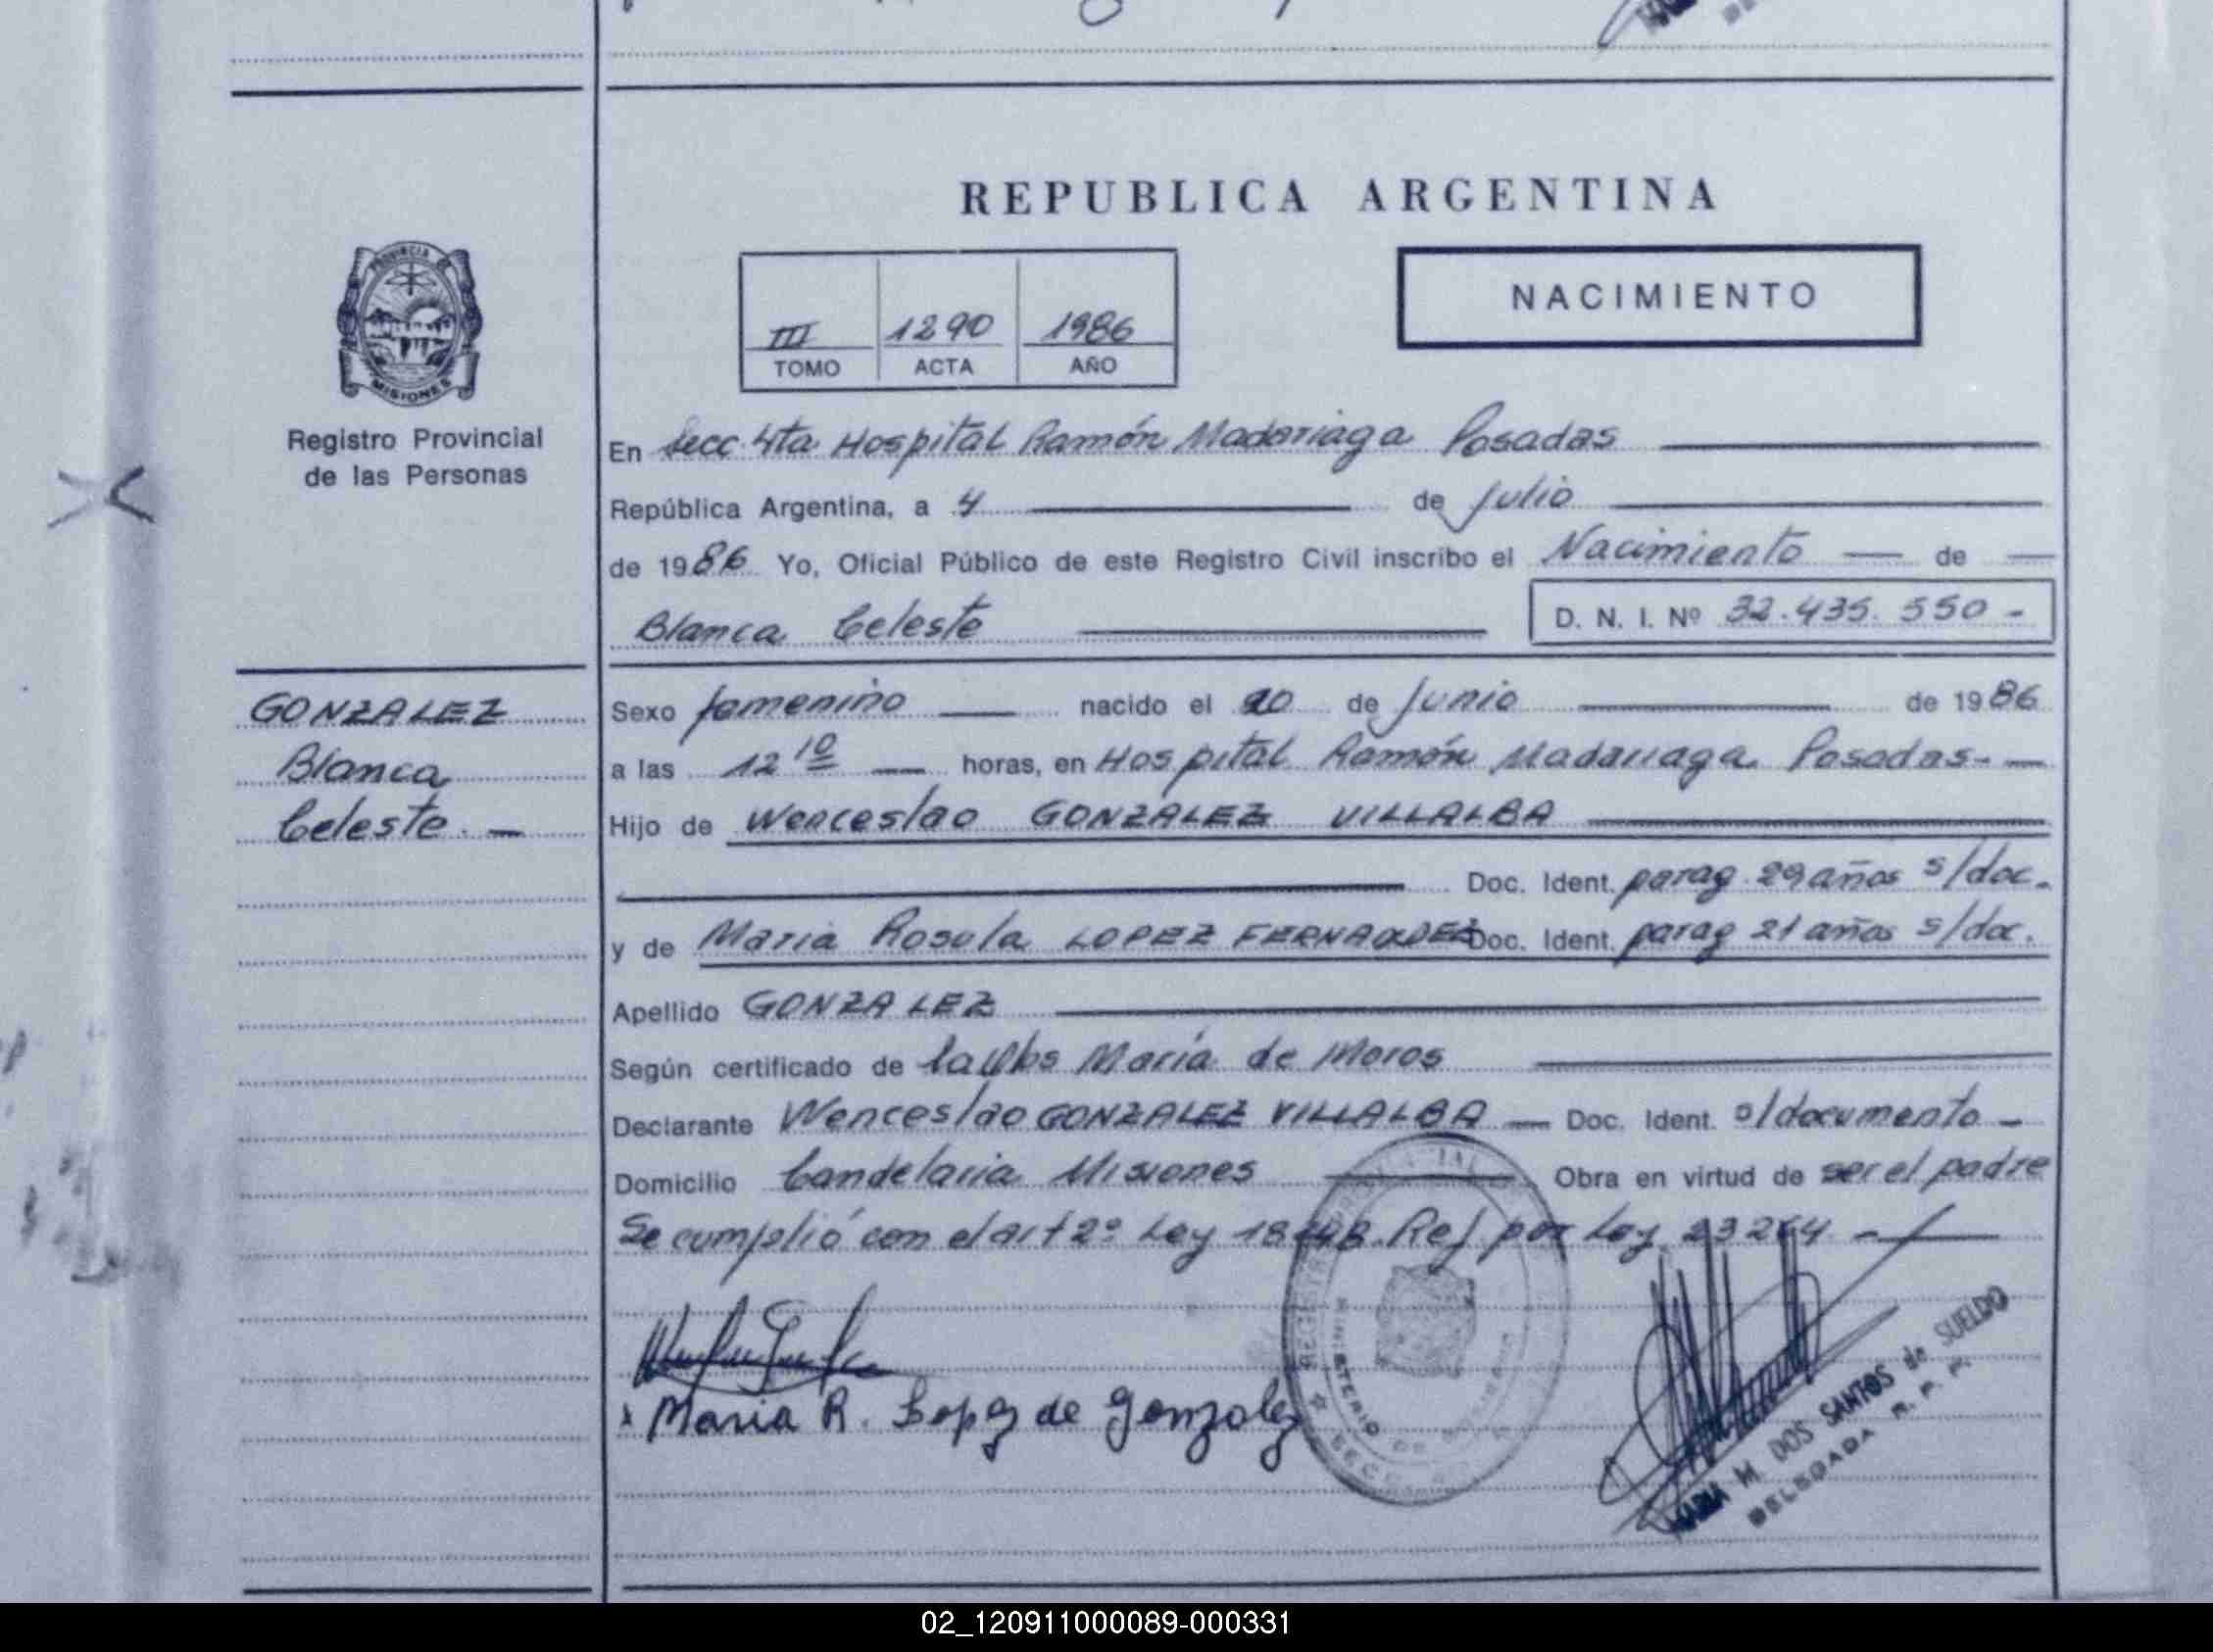 REPUBLICA ARGENTINA
PROVINCIA DE
MISIONES
Registro Provincial
de las Personas
III 1290 1986
TOMO ACTA AÑO
NACIMIENTO
En Secc. 4ta Hospital Ramón Madariaga Posadas
República Argentina, a 4 de Julio
de 1986 Yo, Oficial Público de este Registro Civil inscribo el Nacimiento de
Blanca Celeste D. N. I. Nº 32.435.550 -
GONZALEZ
Blanca
Celeste. -
Sexo femenino nacido el 20 de Junio de 1986
a las 12 10 horas, en Hospital Ramón Madariaga Posadas. -
Hijo de Wenceslao GONZALEZ VILLALBA
Doc. Ident. parag 29 años s/doc.
y de Maria Rosula LOPEZ FERNANDEZ Doc. Ident. parag 21 años s/doc.
Apellido GONZALEZ
Según certificado de María de Moros
Declarante Wenceslao GONZALEZ VILLALBA - Doc. Ident. s/documento -
Domicilio Candelaria Misiones Obra en virtud de ser el padre
Se cumplió con el art 2º Ley 18248 Ref por Ley 23264 -
Maria R. Lopez de Gonzalez
MARIA M. DOS SANTOS de SUELDO
DELEGADA R. P. P.
02_120911000089-000331